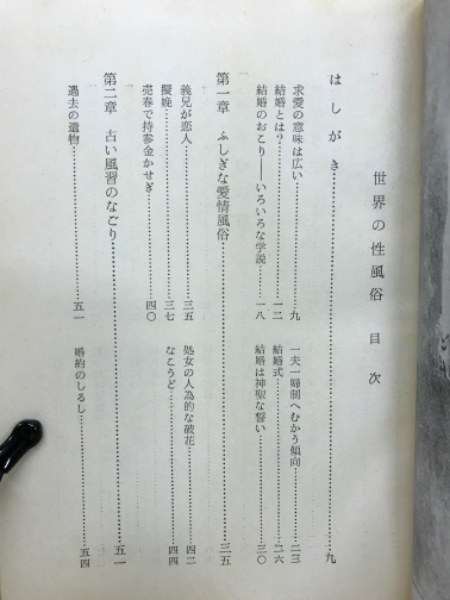 世界の性風俗 目次
はしがき……九
求愛の意味は広い……九
結婚とは?……一二
結婚のおこり――いろいろな学説……一八
一夫一婦制へむかう傾向……二三
結婚式……二六
結婚は神聖な誓い……三〇
第一章 ふしぎな愛情風俗……三五
義兄が恋人……三五
擬娩……三七
売春で持参金かせぎ……四〇
処女の人為的な破花……四二
なこうど……四四
第二章 古い風習のなごり……五一
過去の遺物……五一
婚約のしるし……五四